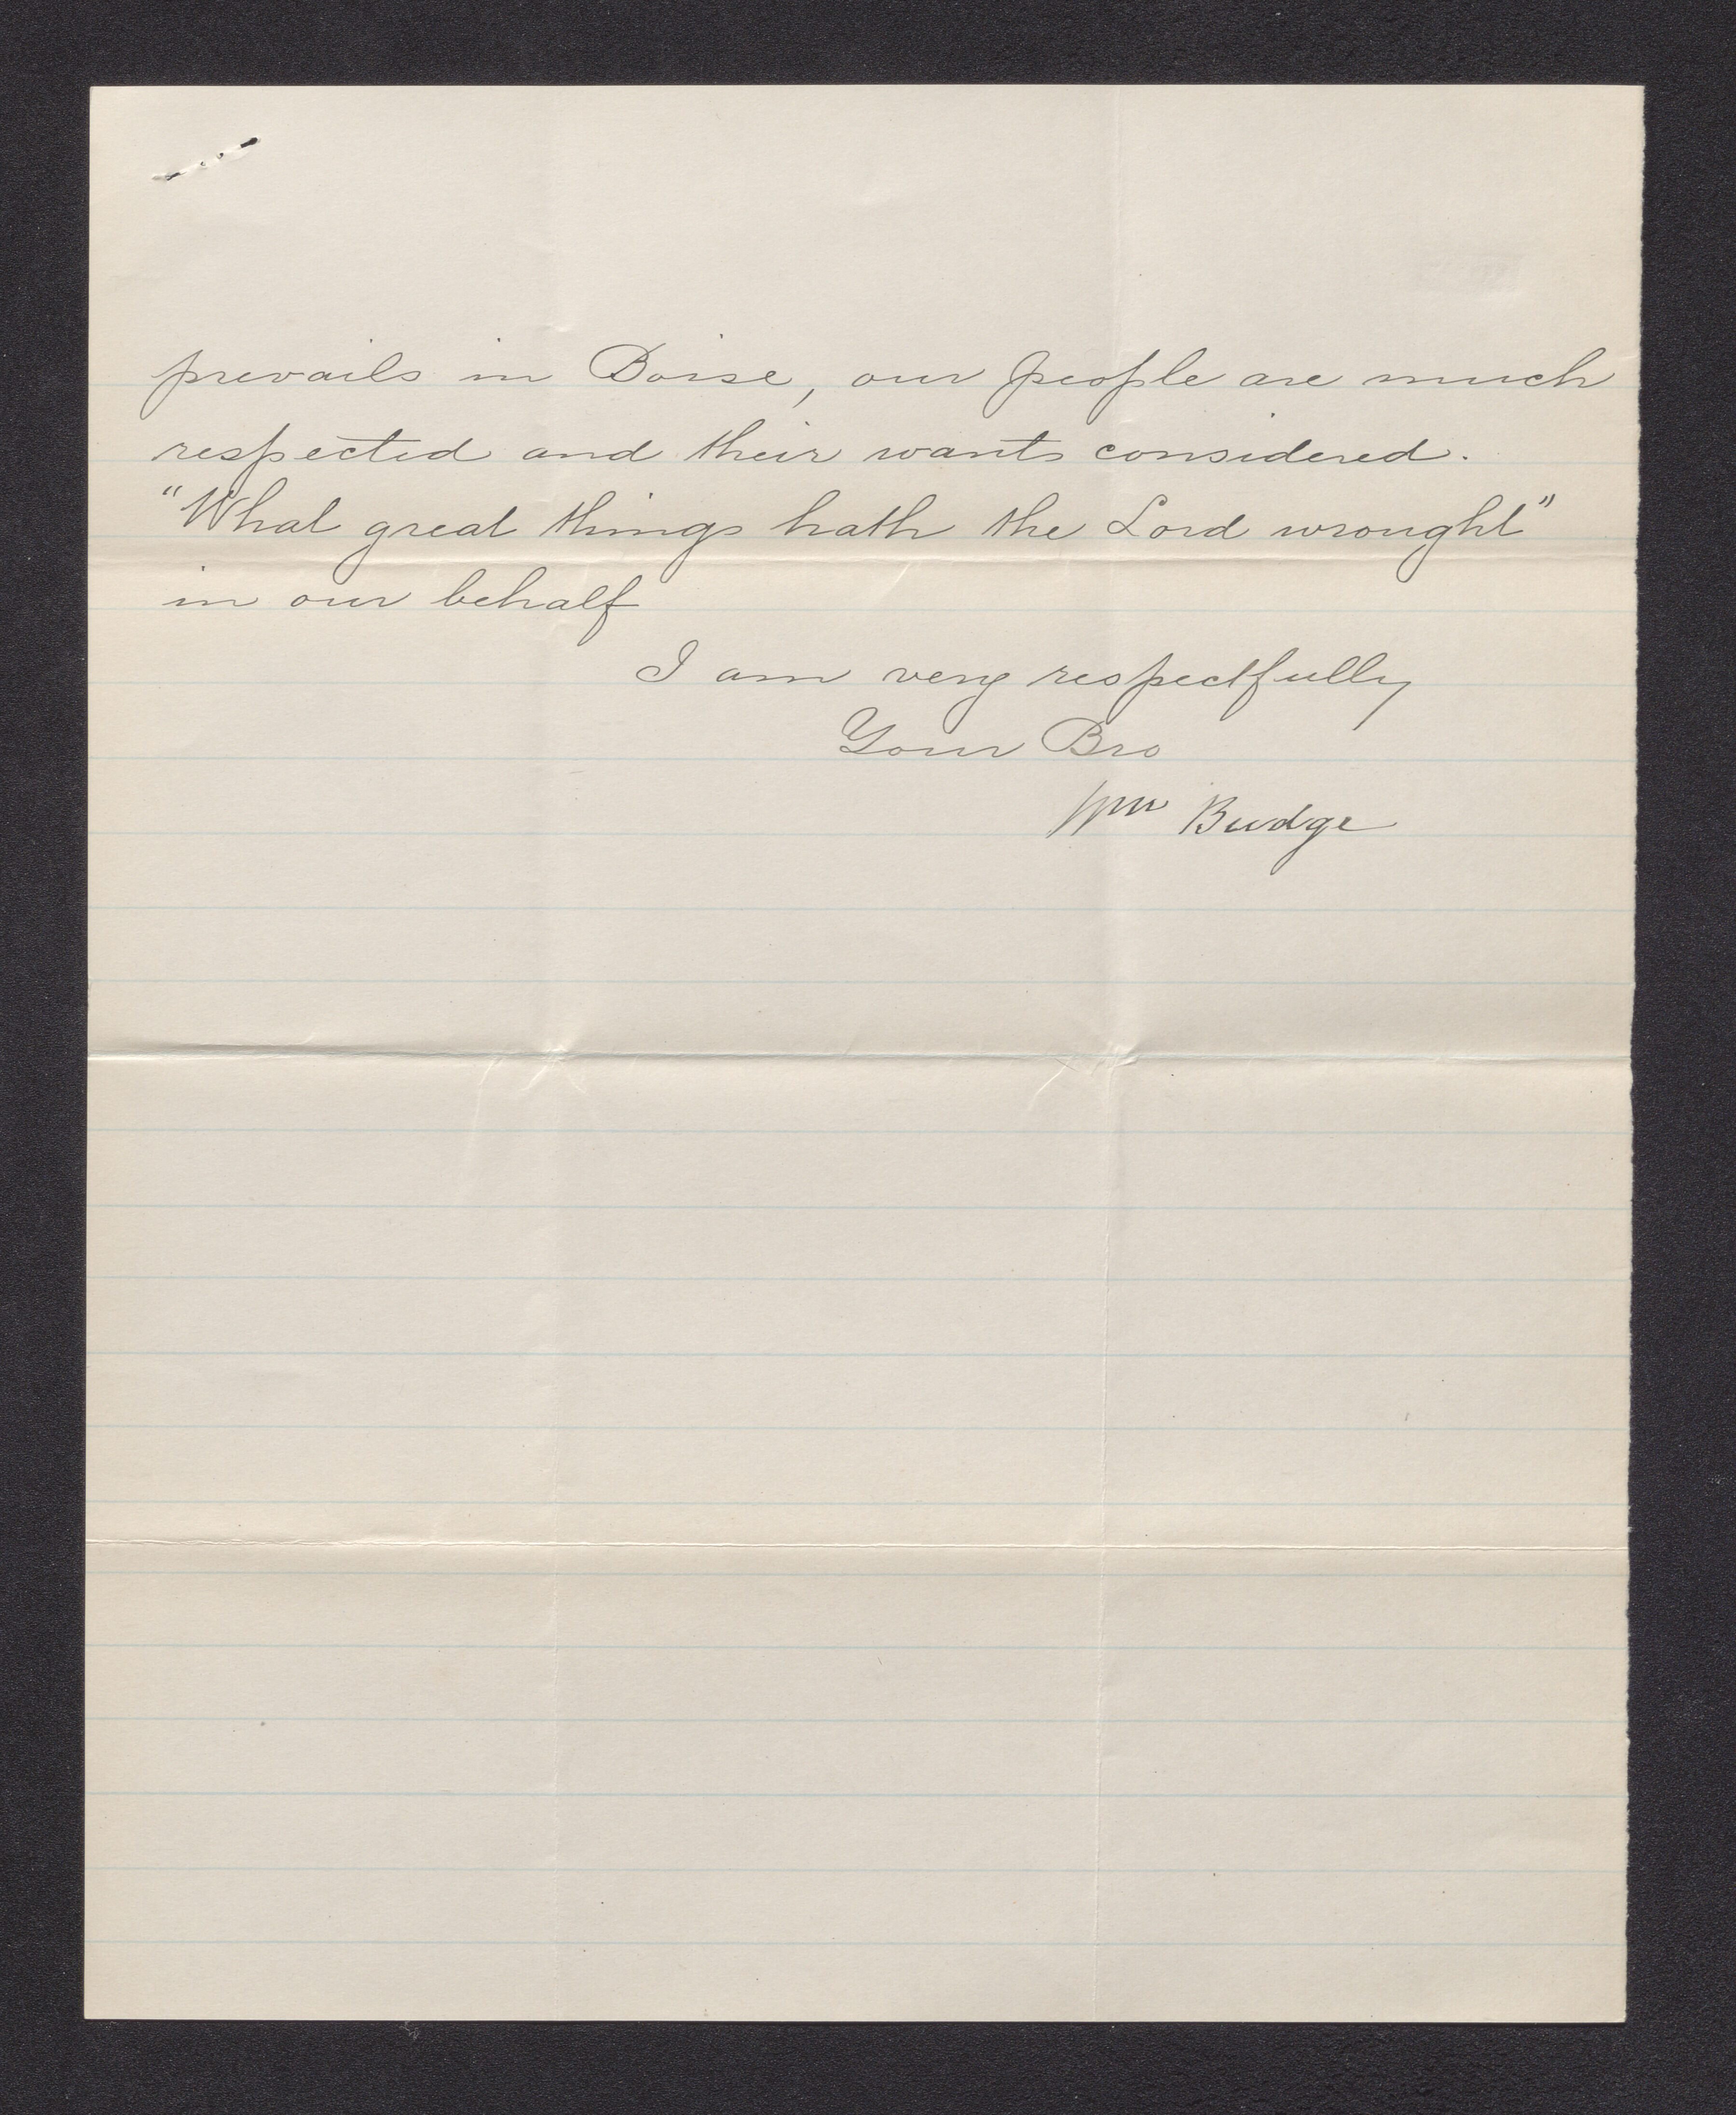 prevails in Boise, our people are much
respected and their wants considered.
"What great things hath the Lord wrought"
in our behalf
I am very respectfully
Your Bro
Wm Budge